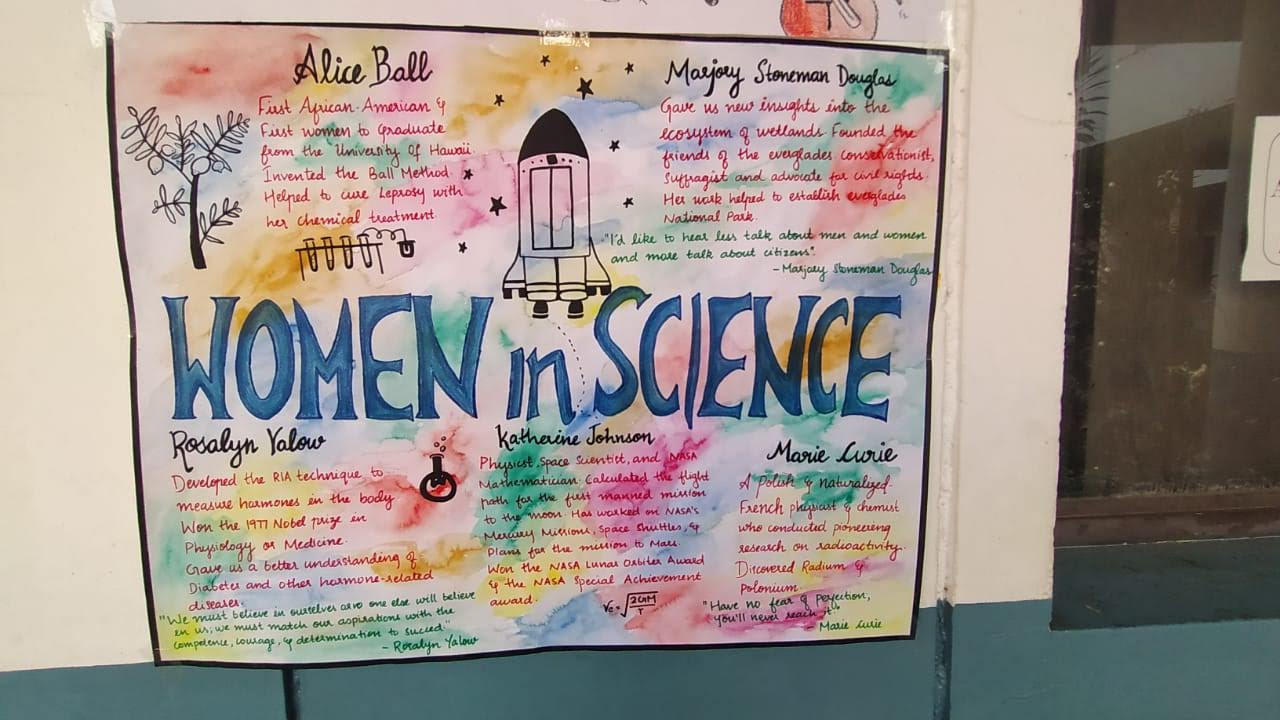 Alice Ball
First African-American &
First women to Graduate
from the University Of Hawaii.
Invented the Ball Method.
Helped to cure Leprosy with
her chemical treatment.
Marjory Stoneman Douglas
Gave us new insights into the
ecosystem of wetlands. Founded the
friends of the everglades. conservationist,
Suffragist and advocate for civil rights.
Her work helped to establish everglades
National Park.
"I'd like to hear less talk about men and women
and more talk about citizens".
- Marjory Stoneman Douglas
WOMEN in SCIENCE
Rosalyn Yalow
Developed the RIA technique to
measure hormones in the body
Won the 1977 Nobel prize in
Physiology or Medicine.
Gave us a better understanding of
Diabetes and other hormone-related
diseases.
"We must believe in ourselves or no one else will believe
in us; we must match our aspirations with the
competence, courage, & determination to succeed"
- Rosalyn Yalow
Katherine Johnson
Physicist, Space Scientist, and NASA
Mathematician. Calculated the flight
path for the first manned mission
to the moon. Has worked on NASA's
Mercury Missions, Space Shuttles, &
Plans for the mission to Mars.
Won the NASA Lunar Orbiter Award
& the NASA Special Achievement
award.
Ve = √2GM/r
Marie Curie
A Polish & naturalized-
French physicist & chemist
who conducted pioneering
research on radioactivity.
Discovered Radium &
Polonium.
"Have no fear of perfection,
you'll never reach it".
- Marie Curie